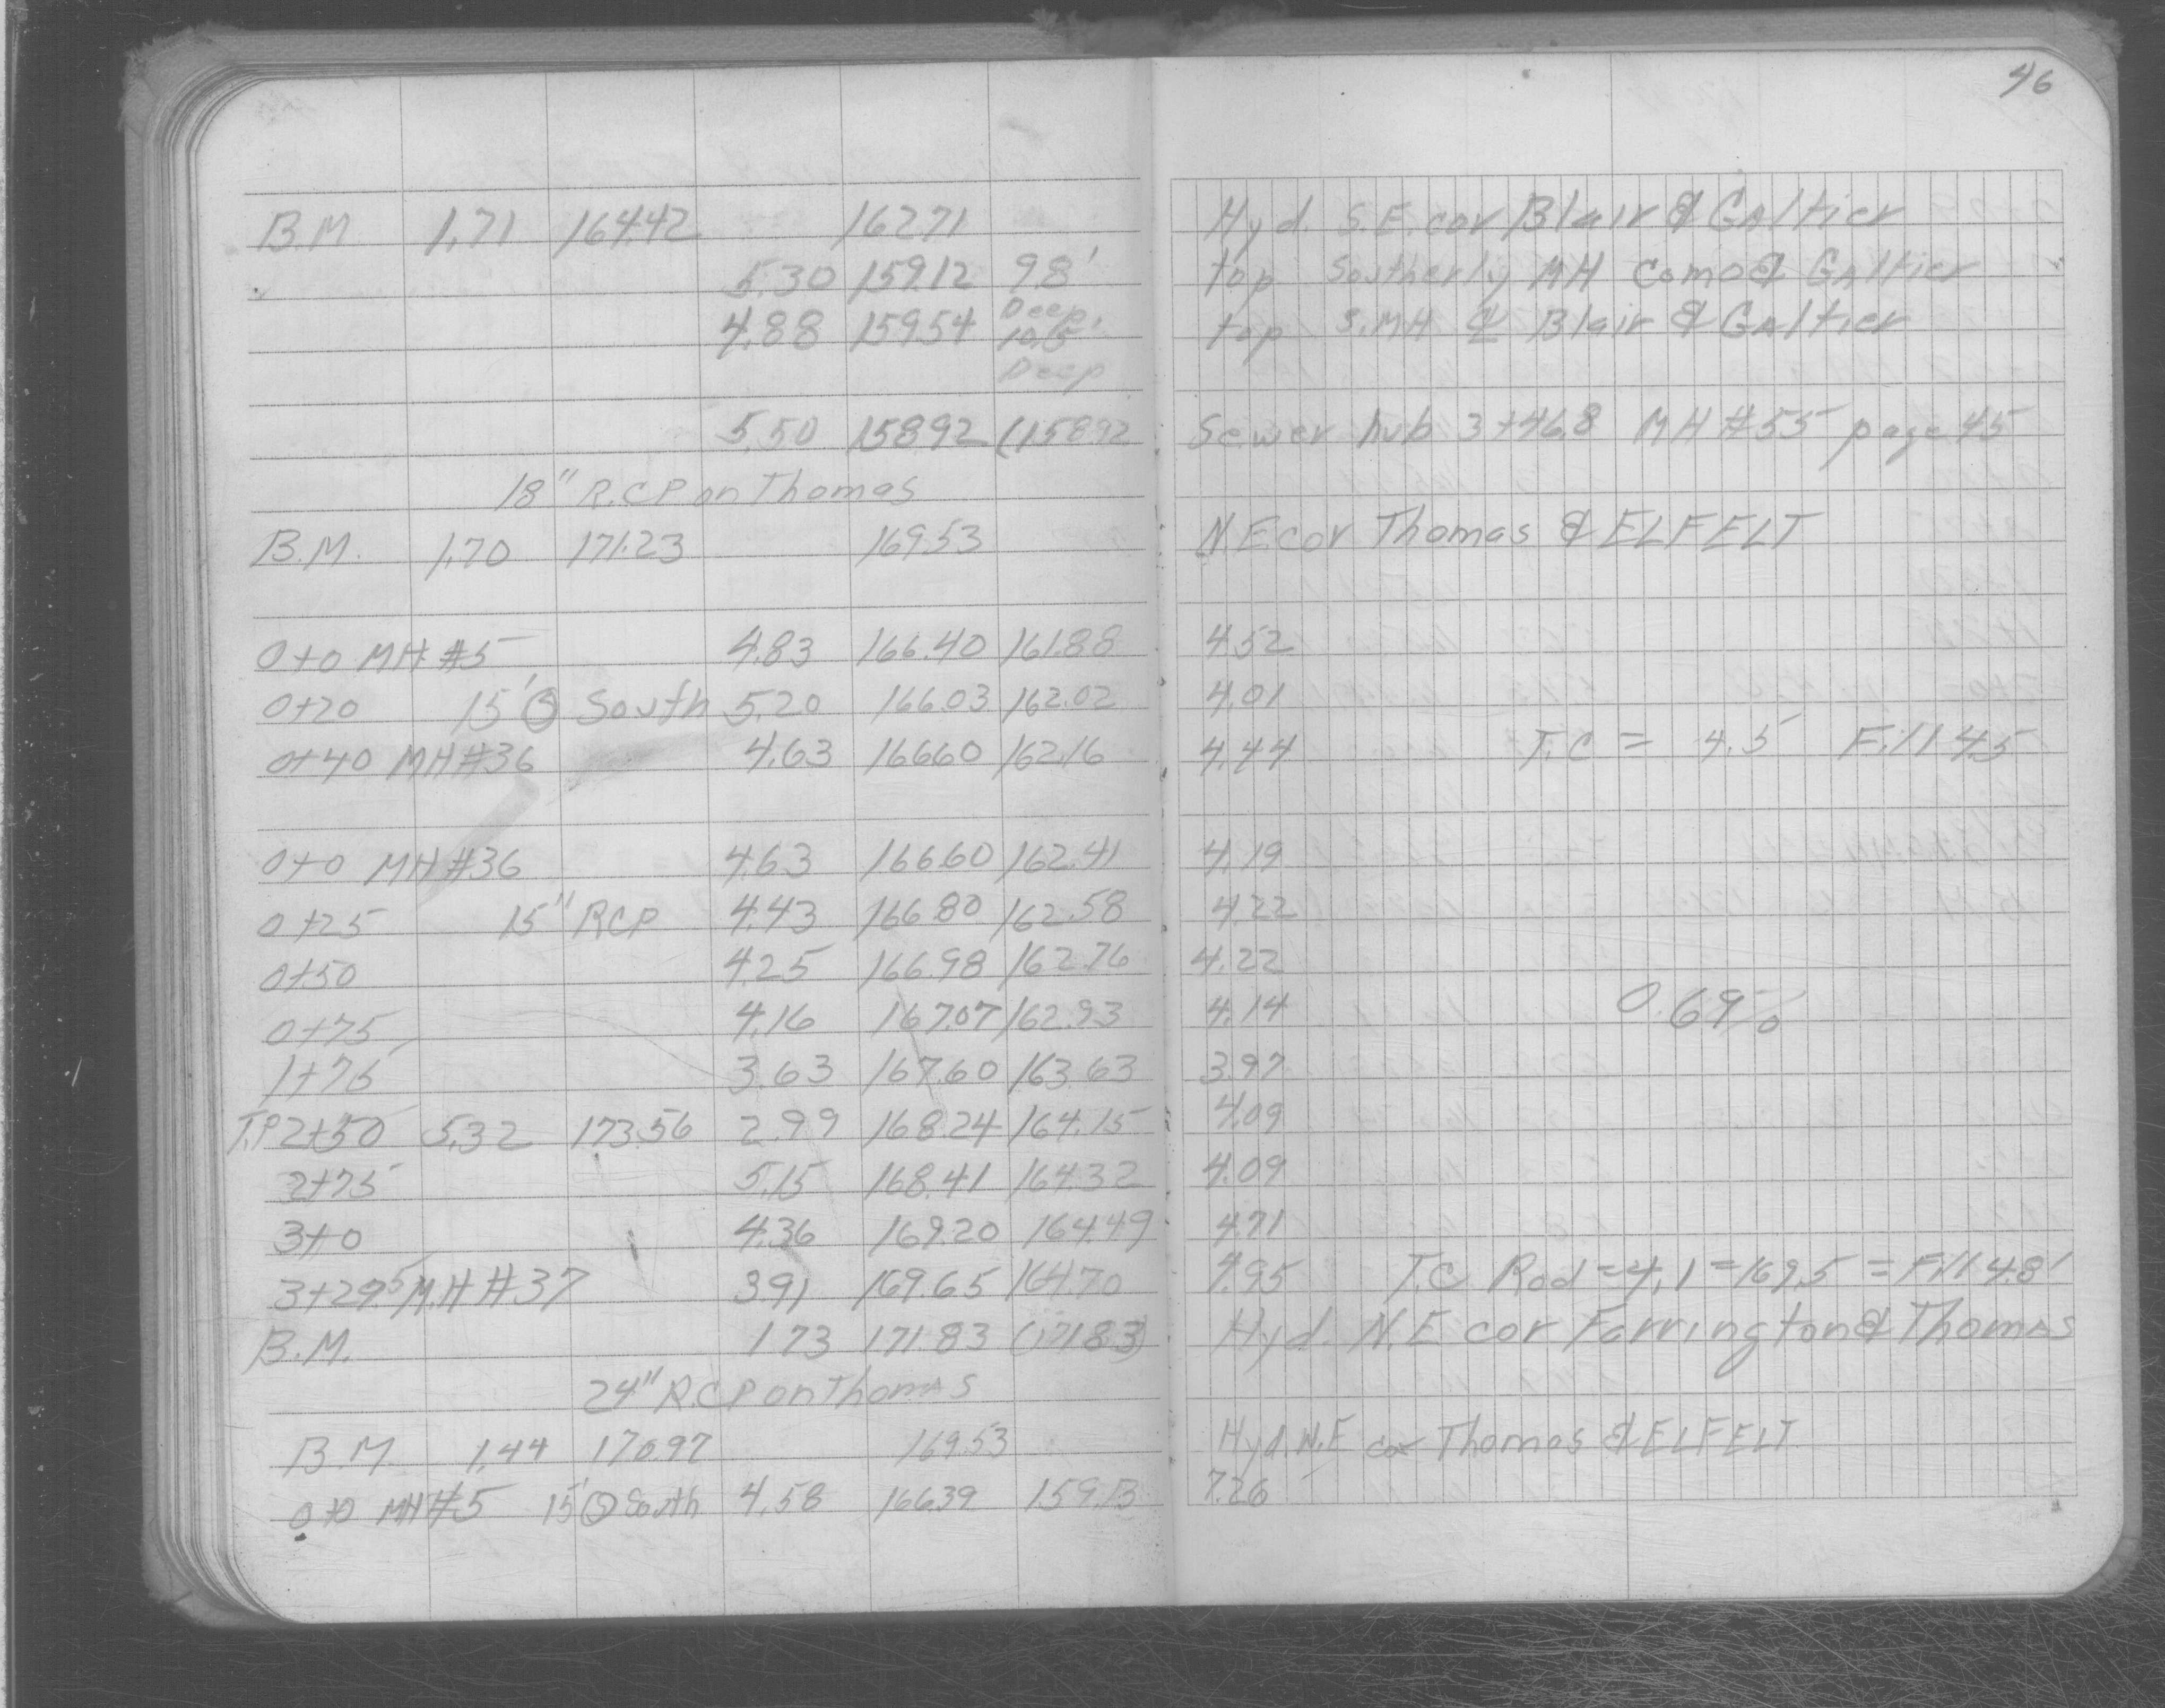 46
B.M. 1.71 164.42 162.71 Hyd. S.E. cor Blair & GAltier
5.30 159.12 9.8' top Southerly MH Como & GAltier
Deep.
4.88 159.54 10.5' top S. MH ⅊ Blair & GAltier
Deep
5.50 158.92 (158.92 Sewer hub 3+46.8 MH #55 page 45
18" R.C.P on Thomas
B.M. 1.70 171.23 169.53 N.E. cor Thomas & ELFELT
0+0 MH #5 4.83 166.40 161.88 4.52
0+20 15' Ⓢ South 5.20 166.03 162.02 4.01
0+40 MH #36 4.63 166.60 162.16 4.44 T.C = 4.5 Fill 4.5
0+0 MH #36 4.63 166.60 162.41 4.19
0+25 15" RCP 4.43 166.80 162.58 4.22
0+50 4.25 166.98 162.76 4.22
0+75 4.16 167.07 162.93 4.14 0.69%
1+75 3.63 167.60 163.63 3.97
T.P 2+50 5.32 173.56 2.99 168.24 164.15 4.09
2+75 5.15 168.41 164.32 4.09
3+0 4.36 169.20 164.49 4.71
3+29.5 M.H #37 3.91 169.65 164.70 4.95 T.C Rod = 4.1 = 169.5 = Fill 4.8'
B.M. 1.73 171.83 (171.83) Hyd. N.E cor Farrington & Thomas
24" R.C.P on Thomas
B.M. 1.44 170.97 169.53 Hyd. N.E cor Thomas & ELFELT
0+0 MH #5 15' Ⓢ South 4.58 166.39 159.13 7.26